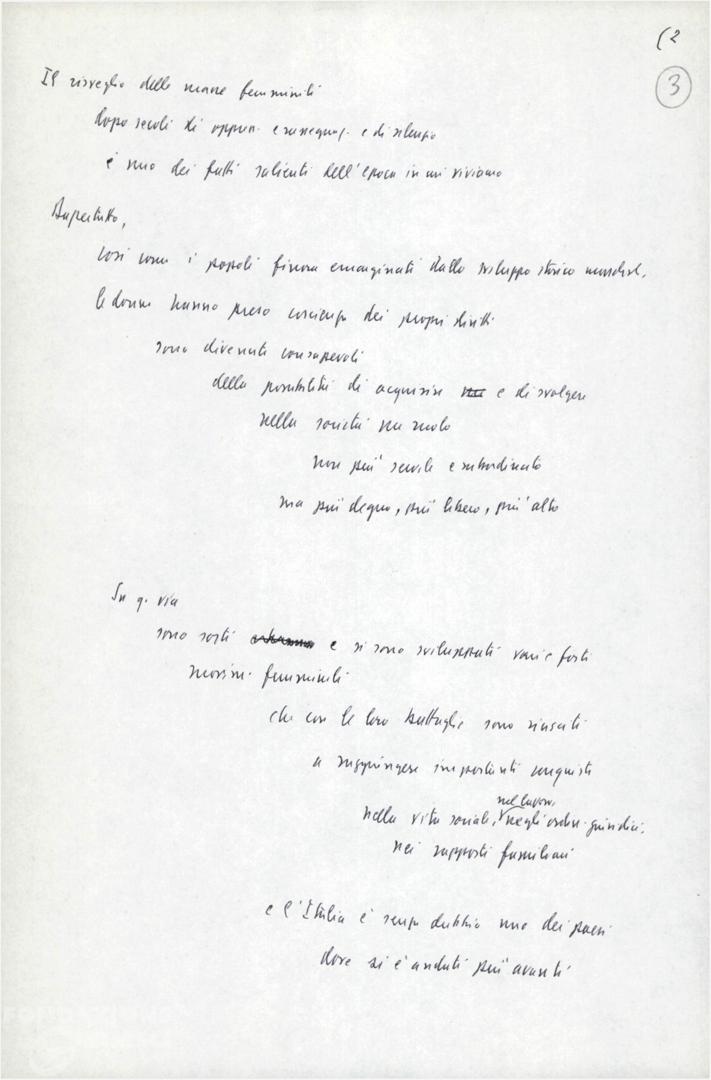 (2
3
Il risveglio delle masse femminili
dopo secoli di oppres. e rassegnaz. e di silenzio
è uno dei fatti salienti dell'epoca in cui viviamo
Dapertutto,
così come i popoli finora emarginati dallo sviluppo storico
le donne hanno preso coscienza dei propri diritti
sono divenute consapevoli
della possibilità di acquisire e di svolgere
nella società un ruolo
non più servile e subordinato
ma più degno, più libero, più alto
In q. via
sono sorti e si sono sviluppati vari e forti
movim. femminili
che con le loro battaglie sono riusciti
a raggiungere importanti conquiste
nel lavoro,
nella vita sociale, negli ordin. giuridici,
nei rapporti familiari
e l'Italia è senza dubbio uno dei paesi
dove si è andati più avanti